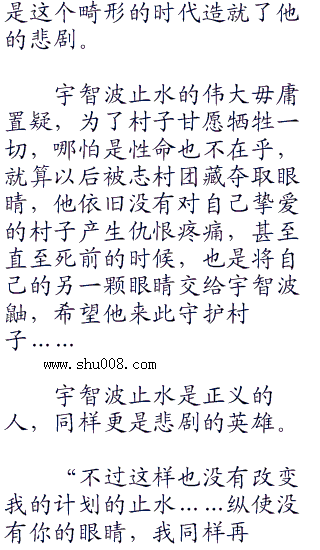 是这个畸形的时代造就了他
的悲剧。
宇智波止水的伟大毋庸
置疑，为了村子甘愿牺牲一
切，哪怕是性命也不在乎，
就算以后被志村团藏夺取眼
睛，他依旧没有对自己挚爱
的村子产生仇恨疼痛，甚至
直至死前的时候，也是将自
己的另一颗眼睛交给宇智波
鼬，希望他来此守护村
子……
www.shu008.com
宇智波止水是正义的
人，同样更是悲剧的英雄。
“不过这样也没有改变
我的计划的止水……纵使没
有你的眼睛，我同样再